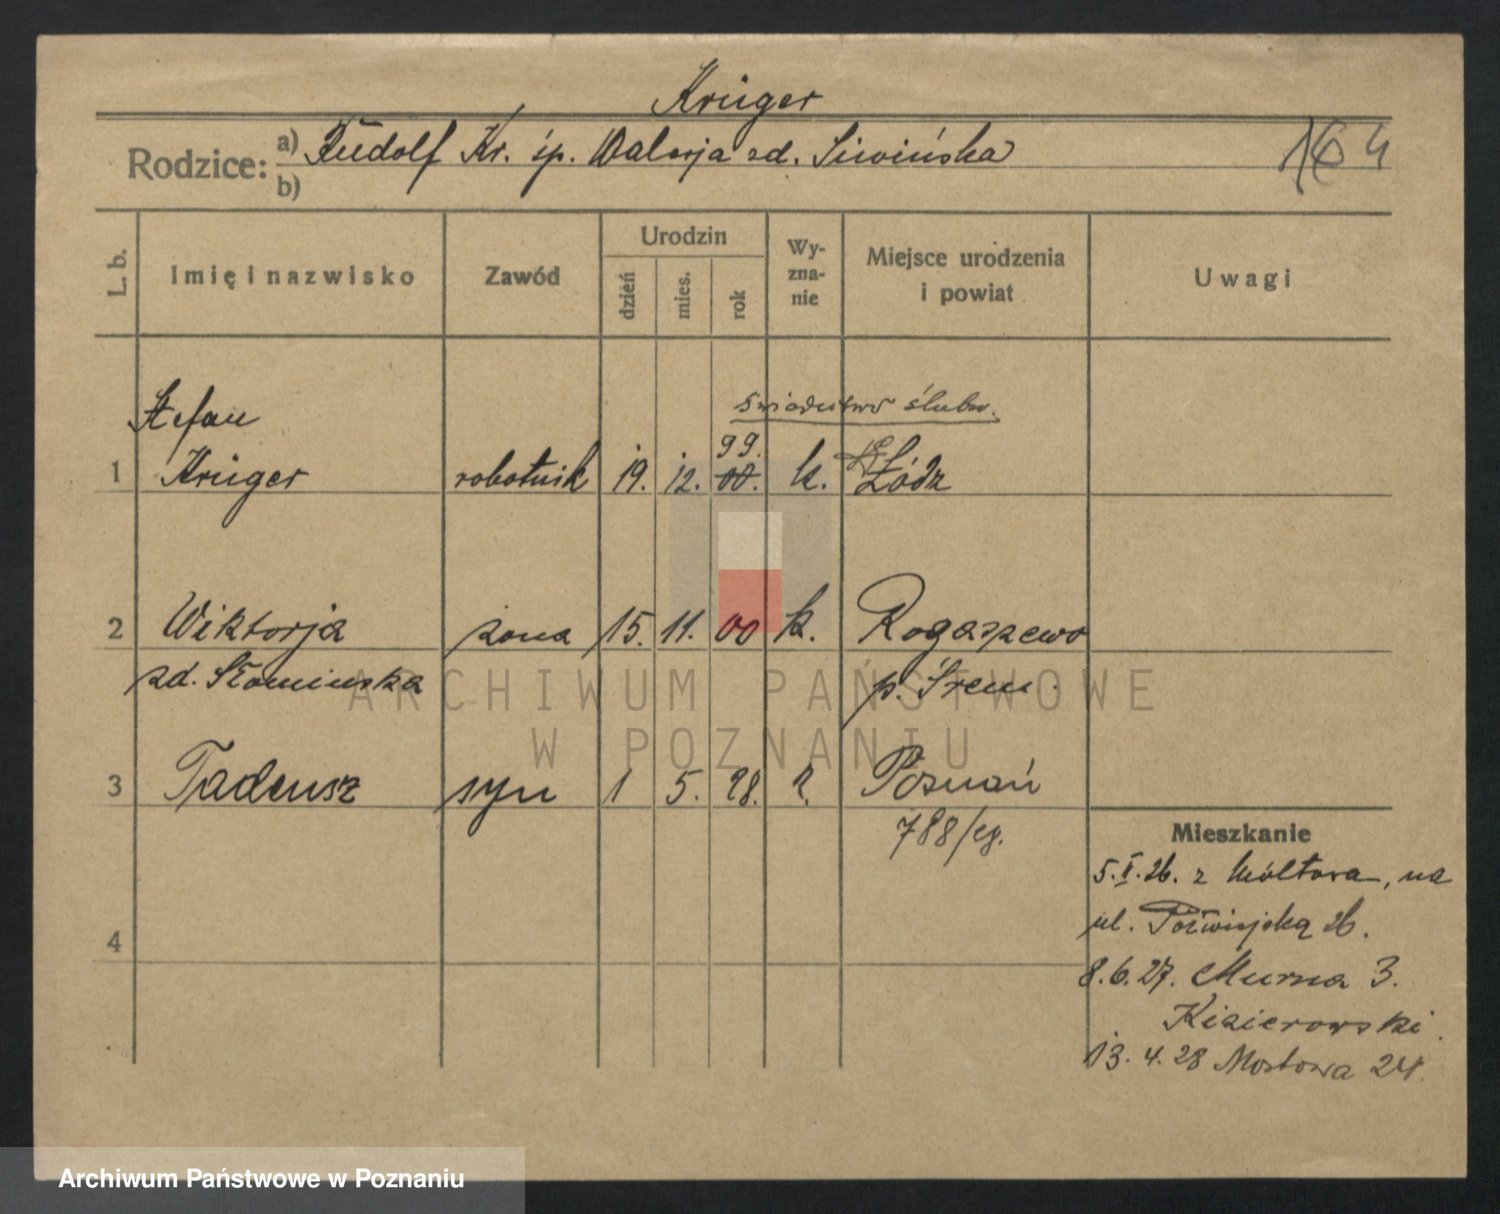 Krüger
Rodzice: a) Rudolf Kr. śp. Walerja zd. Siwińska
b)
164
L. b.
Imię i nazwisko
Zawód
Urodzin
dzień
mies.
rok
Wy-
zna-
nie
Miejsce urodzenia
i powiat
Uwagi
świadectwo ślubu.
Stefan
99.
1 Krüger robotnik 19. 12. 00. k. Łódź
2 Wiktorja żona 15. 11. 00 k. Rogaszewo
zd. Słomińska p. Śrem.
3 Tadeusz syn 1 5. 28. k. Poznań
788/
4
Mieszkanie
5.II.26. z, na
ul. 26.
8.6.27. Murna 3.
13. 4. 28 Mostowa 24.
ARCHIWUM PAŃSTWOWE
W POZNANIU
Archiwum Państwowe w Poznaniu